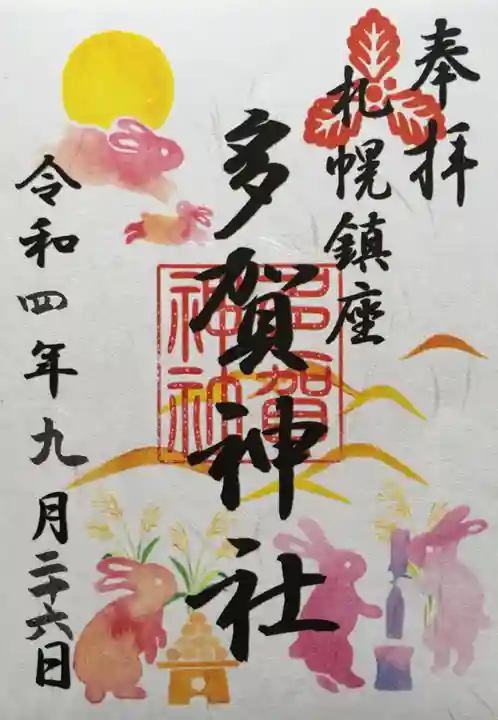 奉拝
札幌鎮座
多賀神社
多賀神社
令和四年九月二十六日